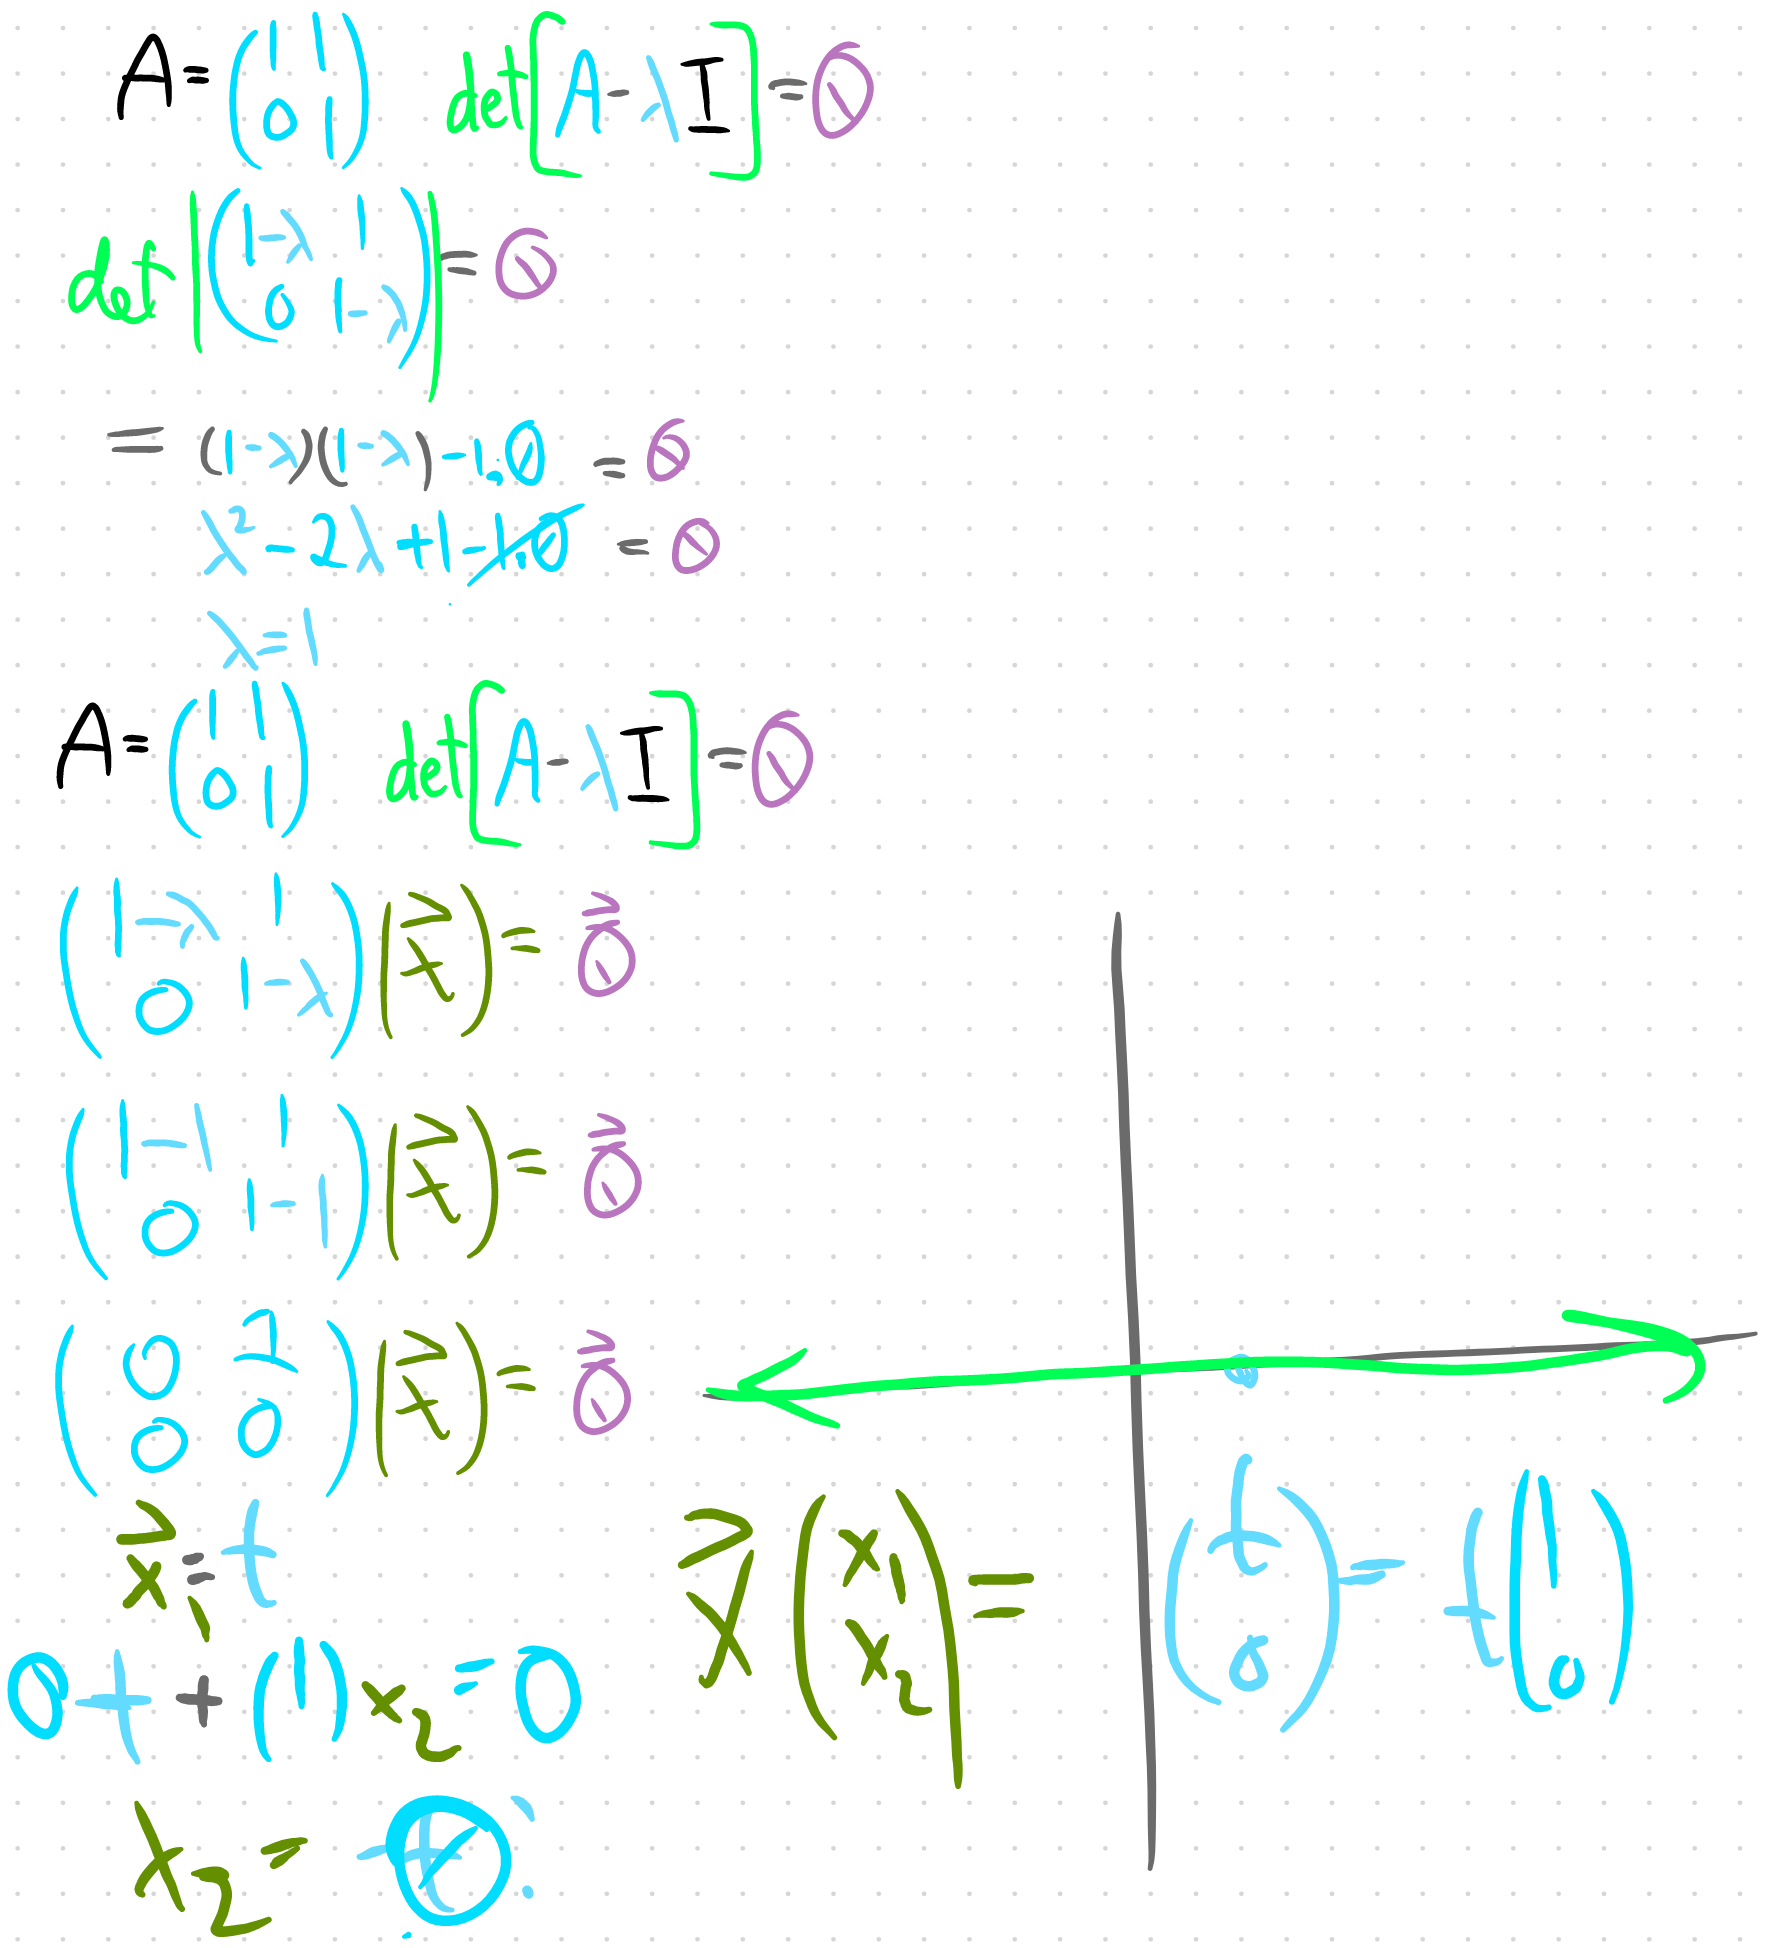 A = (1 1 0 1) det[A - λI] = 0
det |(1-λ 1 0 1-λ)| = 0
= (1-λ)(1-λ) - 1·0 = 0
λ² - 2λ + 1 - 1·0 = 0
λ = 1
A = (1 1 0 1) det[A - λI] = 0
(1-λ 1 0 1-λ)(x⃗) = 0⃗
(1-1 1 0 1-1)(x⃗) = 0⃗
(0 1 0 0)(x⃗) = 0⃗
x⃗₁ = t
x⃗ (x₁ x₂) = (t 0) = t(1 0)
0t + (1)x₂ = 0
x₂ = 0